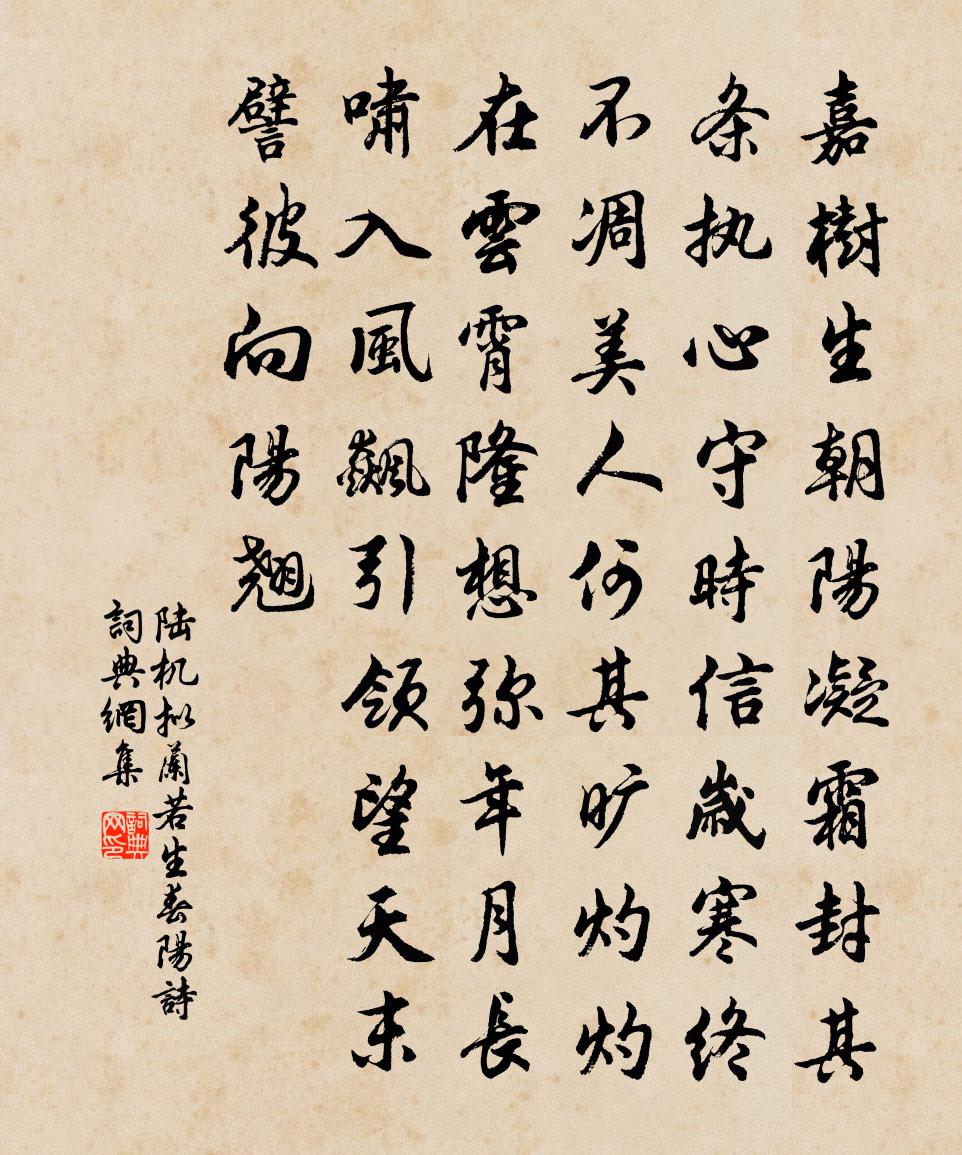 嘉樹生朝陽凝霜封其
条执心守時信歲寒终
不凋美人何其旷灼灼
在雲霄隆想弥年月長
嘯入風飆引领望天末
譬彼向陽翘
陆机拟蘭若生春陽詩
詞典網集
詞典网印